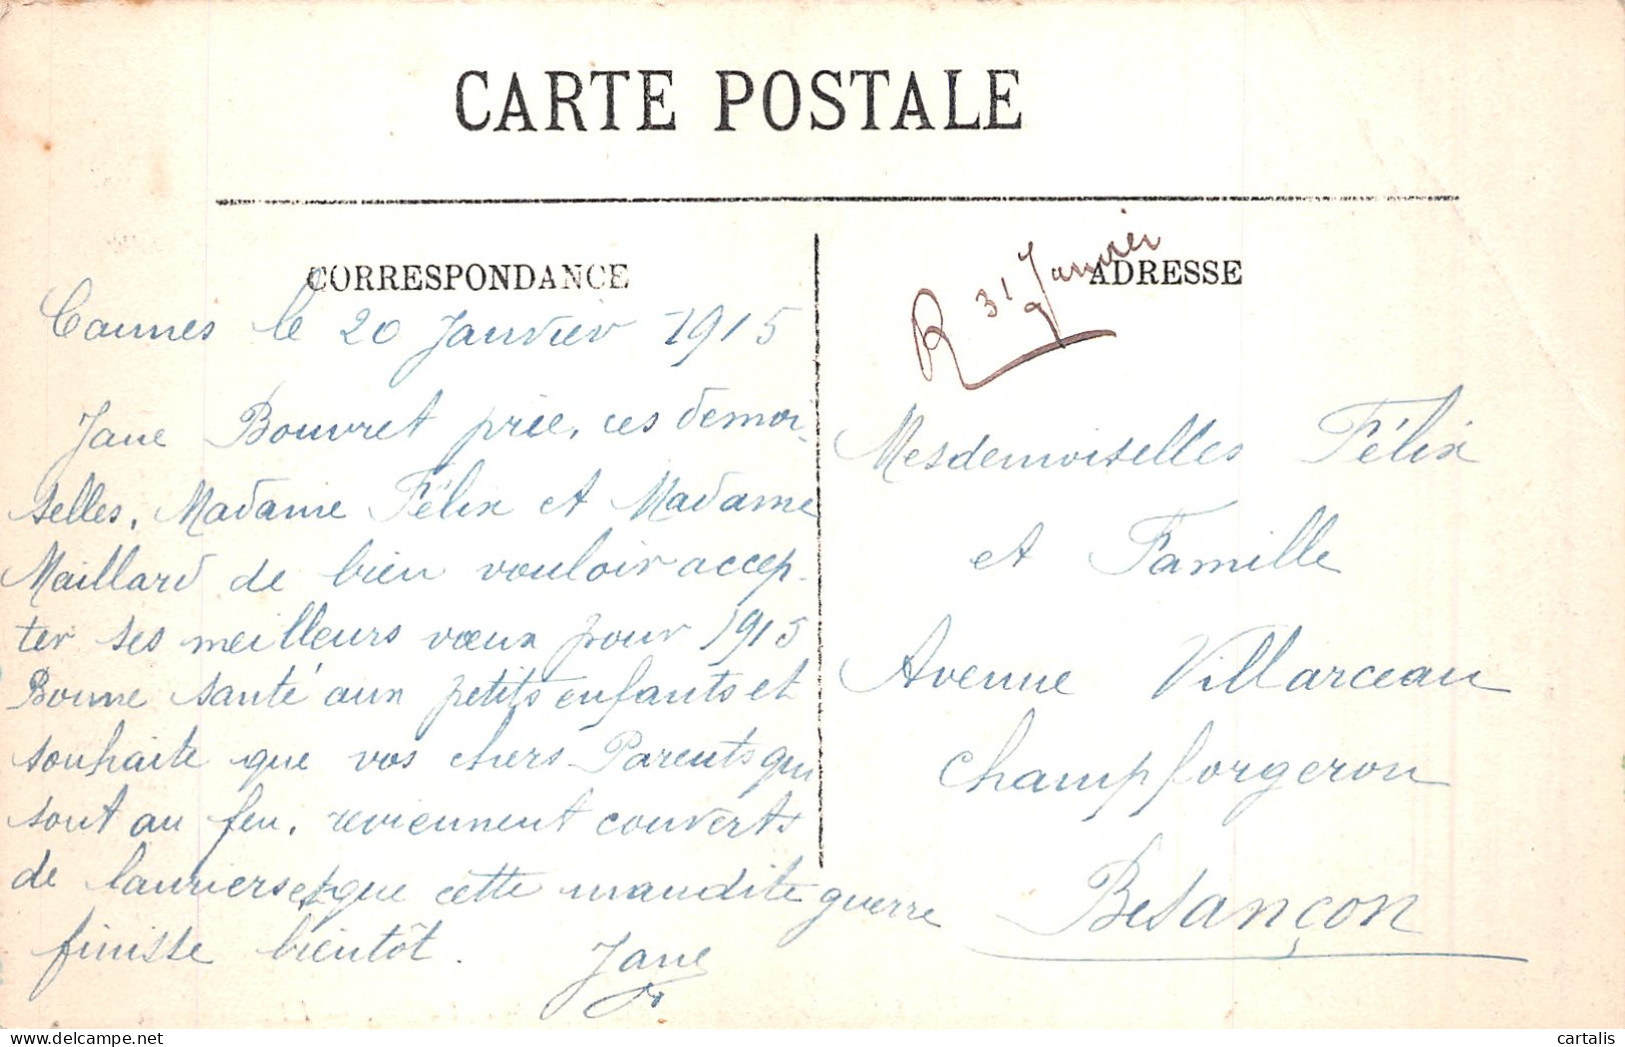 CARTE POSTALE
CORRESPONDANCE
Cannes le 20 Janvier 1915
Jane Bouvret prie, ces demoi-
selles, Madame Félix et Madame
Maillard de bien vouloir accep-
ter ses meilleurs vœux pour 1915
Bonne santé aux petits enfants et
souhaite que vos chers Parents qui
sont au feu, reviennent couverts
de lauriers et que cette maudite guerre
finisse bientôt.
Jane
ADRESSE
R 31 Janvier
Mesdemoiselles Félix
et Famille
Avenue Villarceau
Champforgeron
Besançon
cartalis